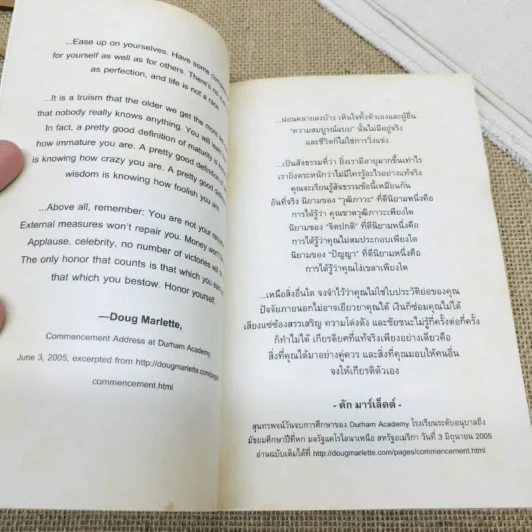 ...Ease up on yourselves. Have some
for yourself as well as for others. There's no
as perfection, and life is not a race.
...It is a truism that the older we get the more
that nobody really knows anything. You will learn
In fact, a pretty good definition of maturity is
how immature you are. A pretty good definition of
is knowing how crazy you are. A pretty good
wisdom is knowing how foolish you are.
...Above all, remember: You are not your
External measures won't repair you. Money won't
Applause, celebrity, no number of victories will
The only honor that counts is that which you
that which you bestow. Honor yourself.
—Doug Marlette,
Commencement Address at Durham Academy,
June 3, 2005, excerpted from http://dougmarlette.com/pages
commencement.html
...ผ่อนคลายลงบ้าง เห็นใจทั้งตัวเองและผู้อื่น
"ความสมบูรณ์แบบ" นั้นไม่มีอยู่จริง
และชีวิตก็ไม่ใช่การวิ่งแข่ง
...เป็นสัจธรรมที่ว่า ยิ่งเรามีอายุมากขึ้นเท่าไร
เรายิ่งตระหนักว่าไม่มีใครรู้อะไรอย่างแท้จริง
คุณจะเรียนรู้สัจธรรมข้อนี้เหมือนกัน
อันที่จริง นิยามของ "วุฒิภาวะ" ที่ดีนิยามหนึ่งคือ
การได้รู้ว่า คุณขาดวุฒิภาวะเพียงใด
นิยามของ "จิตปกติ" ที่ดีนิยามหนึ่งคือ
การได้รู้ว่าคุณไม่สมประกอบเพียงใด
นิยามของ "ปัญญา" ที่ดีนิยามหนึ่งคือ
การได้รู้ว่าคุณโง่เขลาเพียงใด
...เหนือสิ่งอื่นใด จงจำไว้ว่าคุณไม่ใช่ใบประวัติย่อของคุณ
ปัจจัยภายนอกไม่อาจเยียวยาคุณได้ เงินก็ซ่อมคุณไม่ได้
เสียงแซ่ซ้องสรรเสริญ ความโด่งดัง และชัยชนะไม่รู้กี่ครั้งต่อกี่ครั้ง
ก็ทำไม่ได้ เกียรติยศที่แท้จริงเพียงอย่างเดียวคือ
สิ่งที่คุณได้มาอย่างคู่ควร และสิ่งที่คุณมอบให้คนอื่น
จงให้เกียรติตัวเอง
- ดัก มาร์เล็ตต์ -
สุนทรพจน์วันจบการศึกษาของ Durham Academy โรงเรียนระดับอนุบาลถึง
มัธยมศึกษาปีที่หก มลรัฐแคโรไลนาเหนือ สหรัฐอเมริกา วันที่ 3 มิถุนายน 2005
อ่านฉบับเต็มได้ที่ http://dougmarlette.com/pages/commencement.html